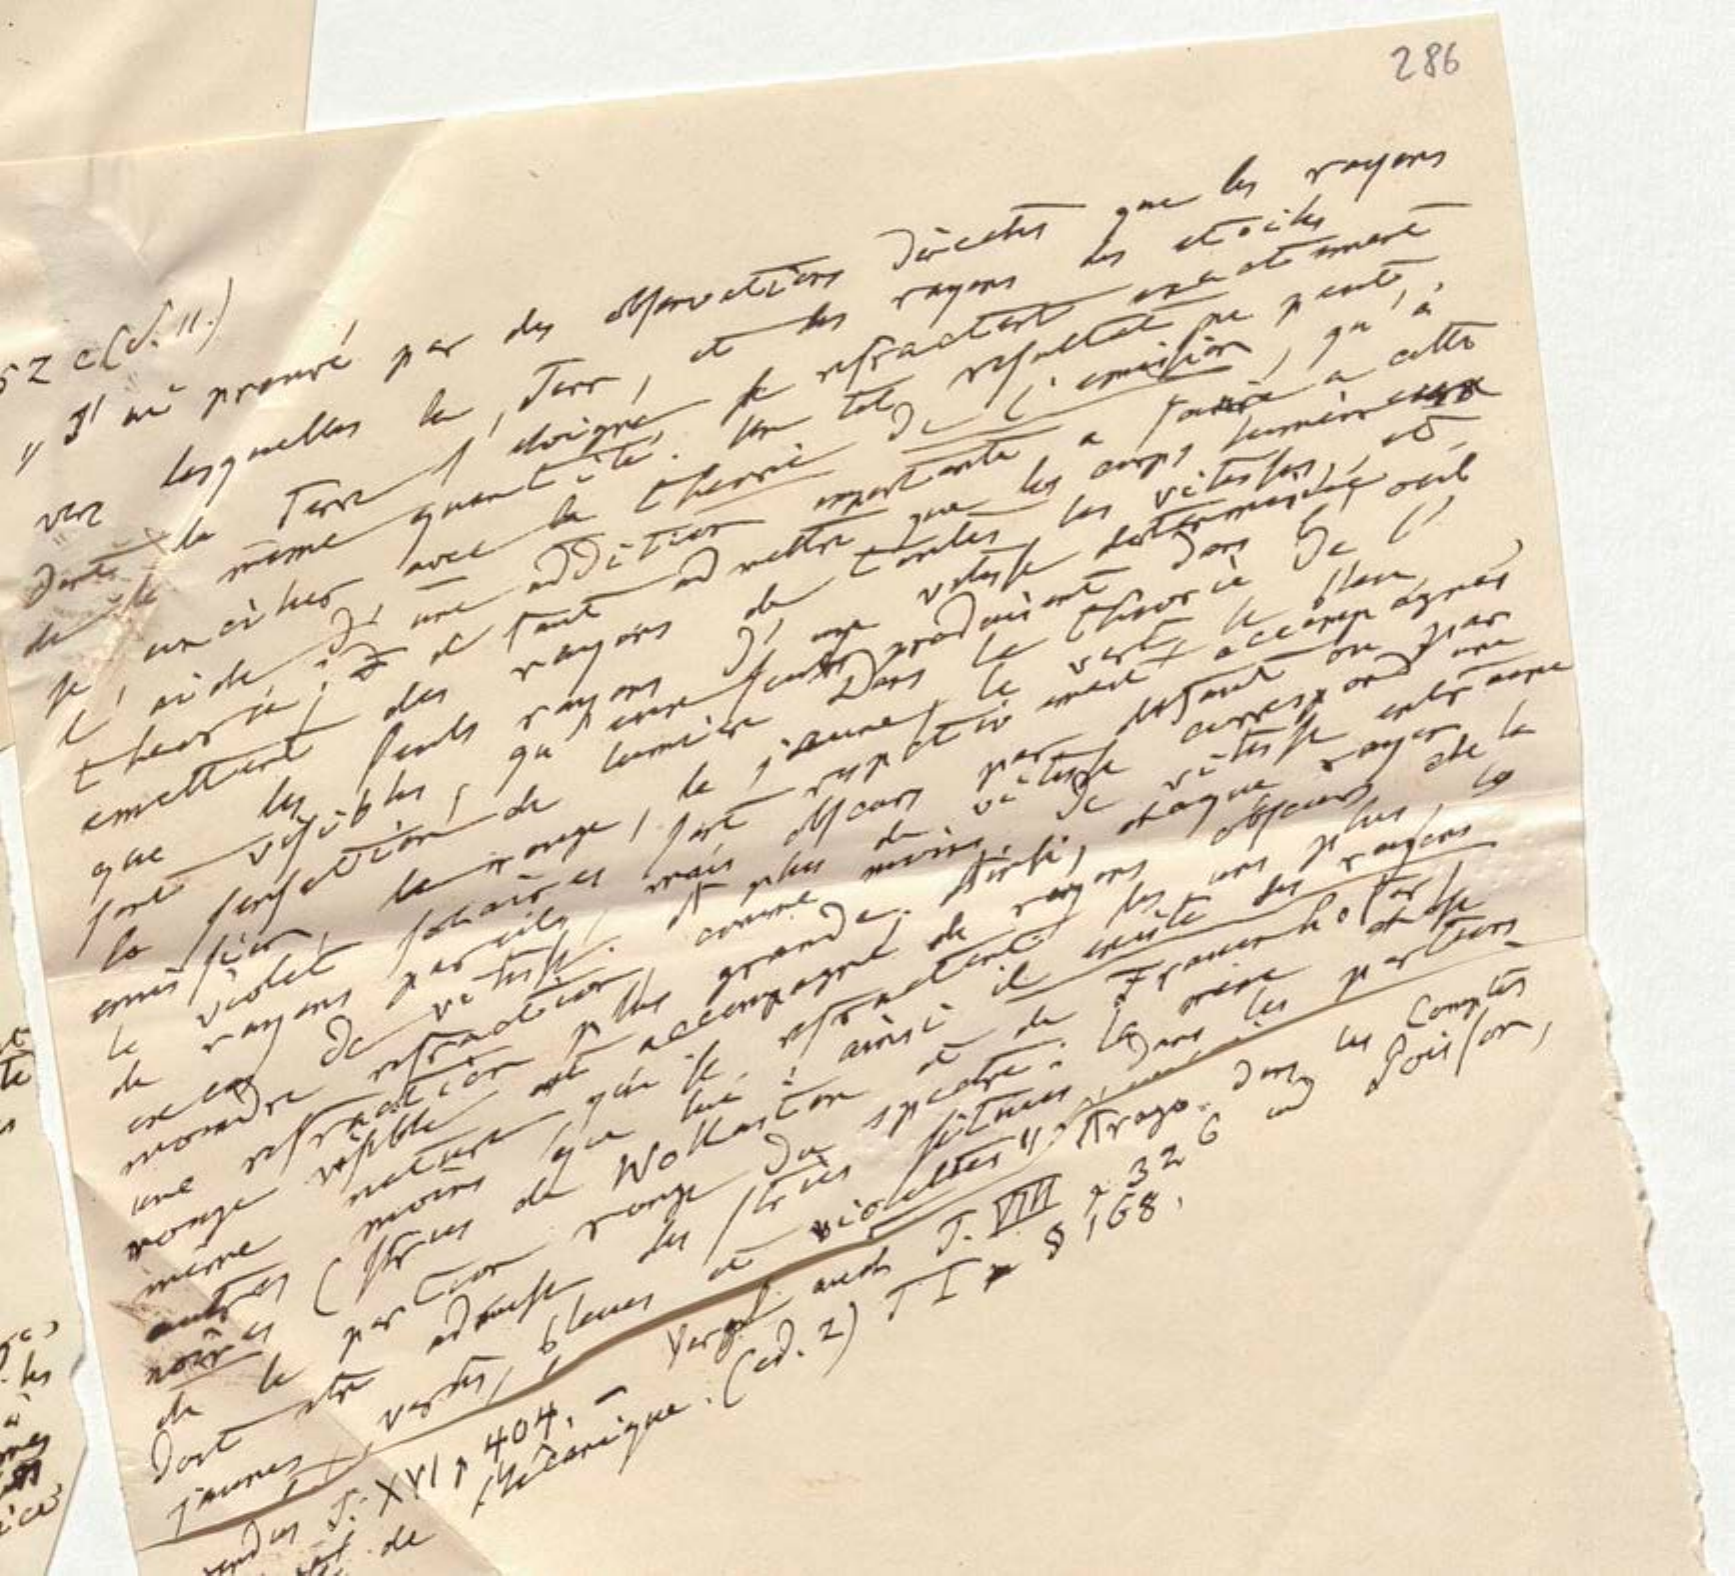 286
52 c (S. 11.)
„J'ai prouvé par des observations directes que les rayons
vers lesquelles la Terre, et les rayons des étoiles
dont la Terre s'éloigne se réfractent exactement
de la même quantité. Un tel résultat ne peut
se concilier avec la théorie de l'emission, qu'à
l'aide d'une addition importante a faire a cette
théorie; il faut admettre que les corps lumineux
emettent des rayons de toutes les vitesses, et
que les seuls rayons d'une vitesse determinée
sont visibles, qu'eux seuls produisent dans l'oeil
la sensation de lumière. Dans la théorie de l'
emission, le rouge, le jaune, le vert, le bleu,
le violet solaires sont respectivement accompagnés
de rayons pareils, mais obscurs par defaut ou par
exces de vitesse. A plus de vitesse correspond une
moindre refraction, comme moins de vitesse entraine
une refraction plus grande. Ainsi, chaque rayon
rouge visible est accompagné de rayons obscurs de la
même nature, qui se refractent les uns plus, les
autres moins que lui: ainsi il existe des rayons
noires (stries de Wollaston et de Fraunhofer)
de la portion rouge du spectre: la meme chose
doit etre admise des stries situées dans les portions
jaunes, vertes, bleues et violettes" Arago. dans les Comptes
rendus T. XVI p 404. – Vergl. auch T. VIII p 326 und Poisson,
de Mécanique. (ed. 2) T I p § 168.